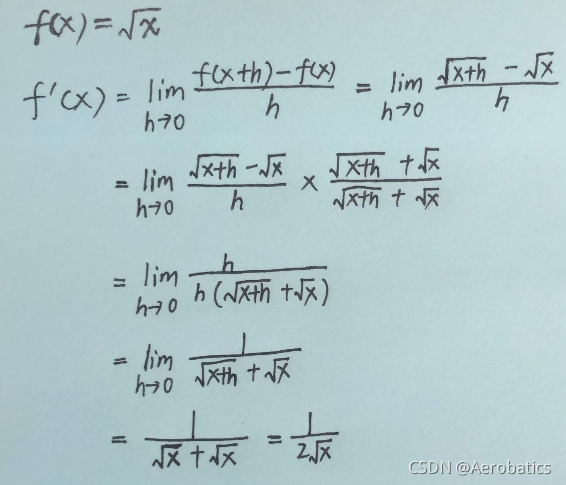 f(x) = √x
f'(x) = lim h→0 (f(x+h) − f(x))/h = lim h→0 (√(x+h) − √x)/h
= lim h→0 (√(x+h) − √x)/h × (√(x+h) + √x)/(√(x+h) + √x)
= lim h→0 h/(h(√(x+h) + √x))
= lim h→0 1/(√(x+h) + √x)
= 1/(√x + √x) = 1/(2√x)
CSDN @Aerobatics